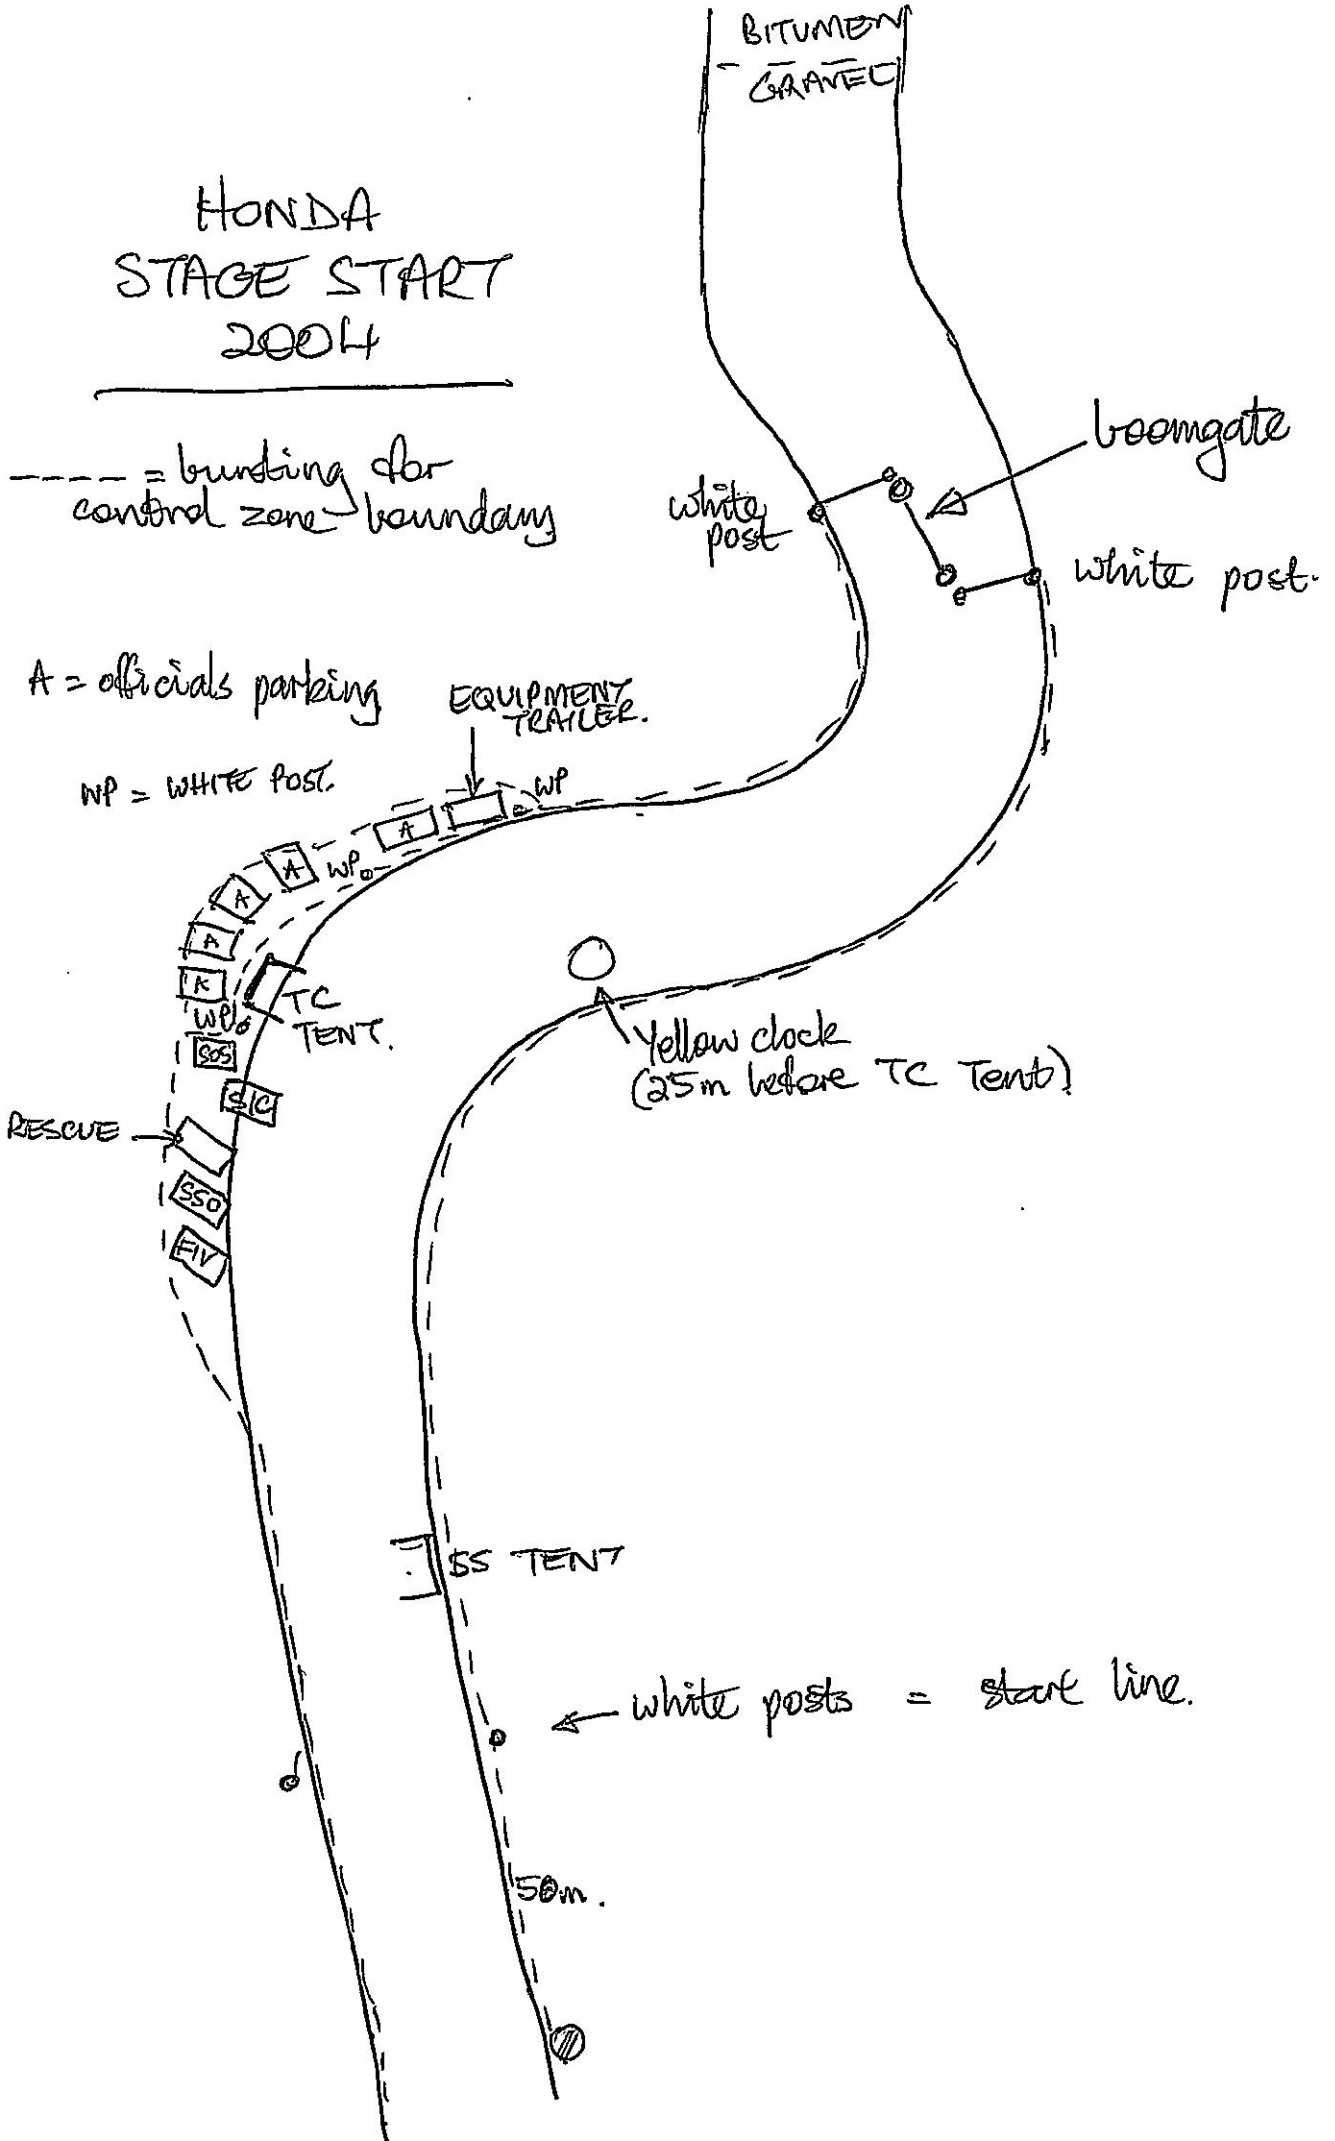 BITUMEN
GRAVEL
HONDA
STAGE START
2004
---- = bunting for
control zone boundary
boomgate
white
post
white post.
A = officials parking
EQUIPMENT
TRAILER.
WP = WHITE POST.
WP
A
A
WP
A
A
A
WP
TC
TENT.
SOS
Yellow clock
(25m before TC Tent)
SIC
RESCUE
SSO
FIV
SS TENT
white posts = start line.
50m.